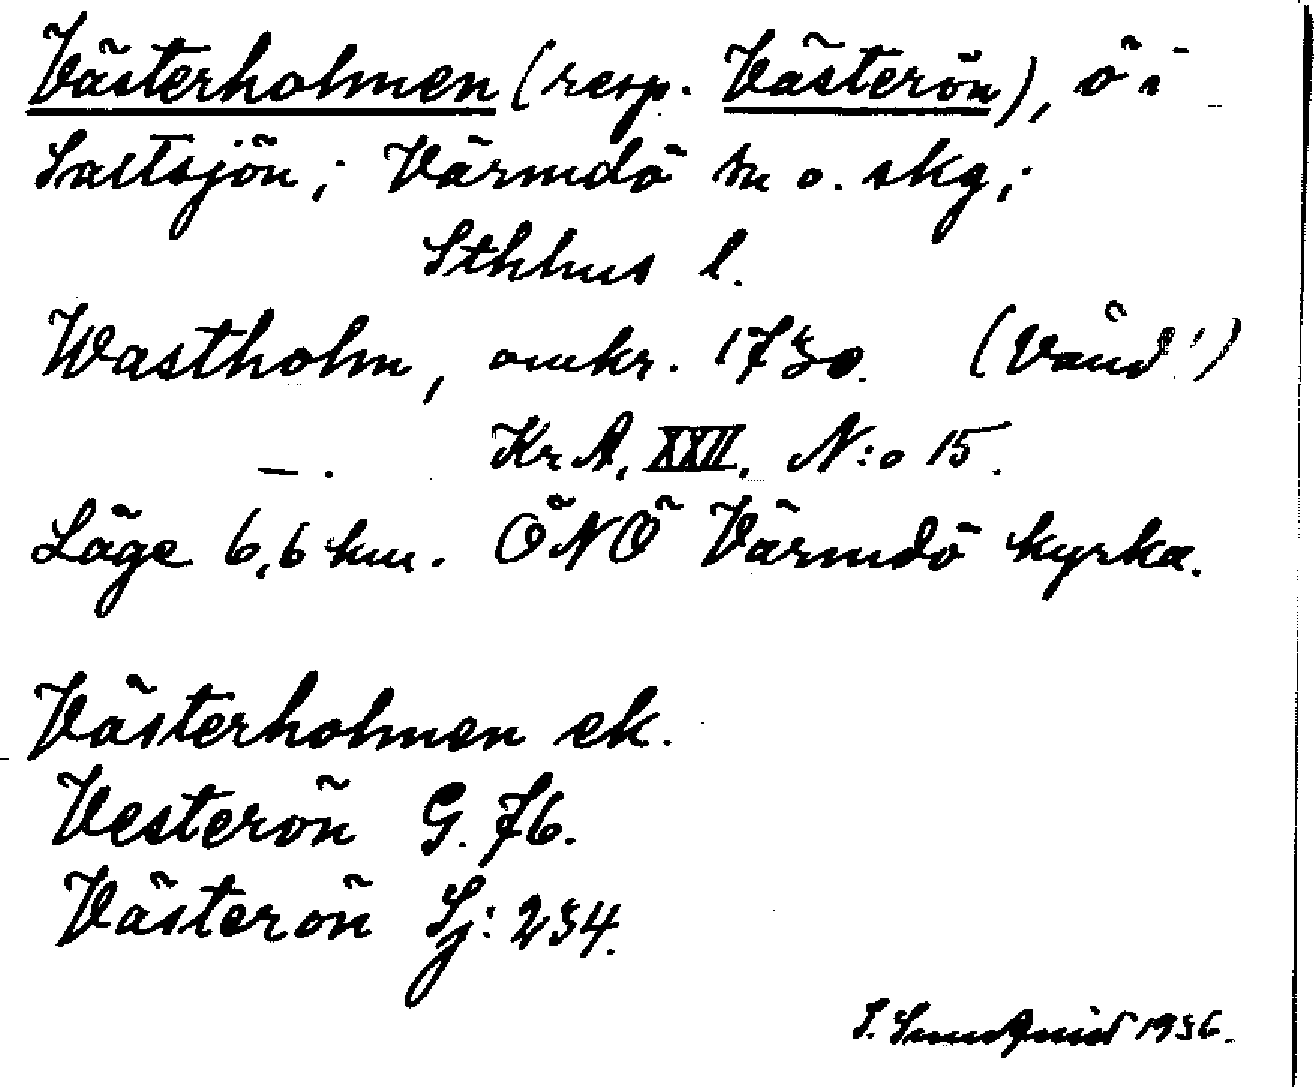 Västerholmen (resp. Västerön), ö i
Saltsjön; Värmdö sn o. skg;
Sthlms l.
Wastholm, omkr. 1730. (Vänd!)
— . KrA, XXII, N:o 15.
Läge 6,6 km. ÖNÖ Värmdö kyrka.
Västerholmen ek.
Vesterön G. 76.
Västerön Sj: 234.
1936.